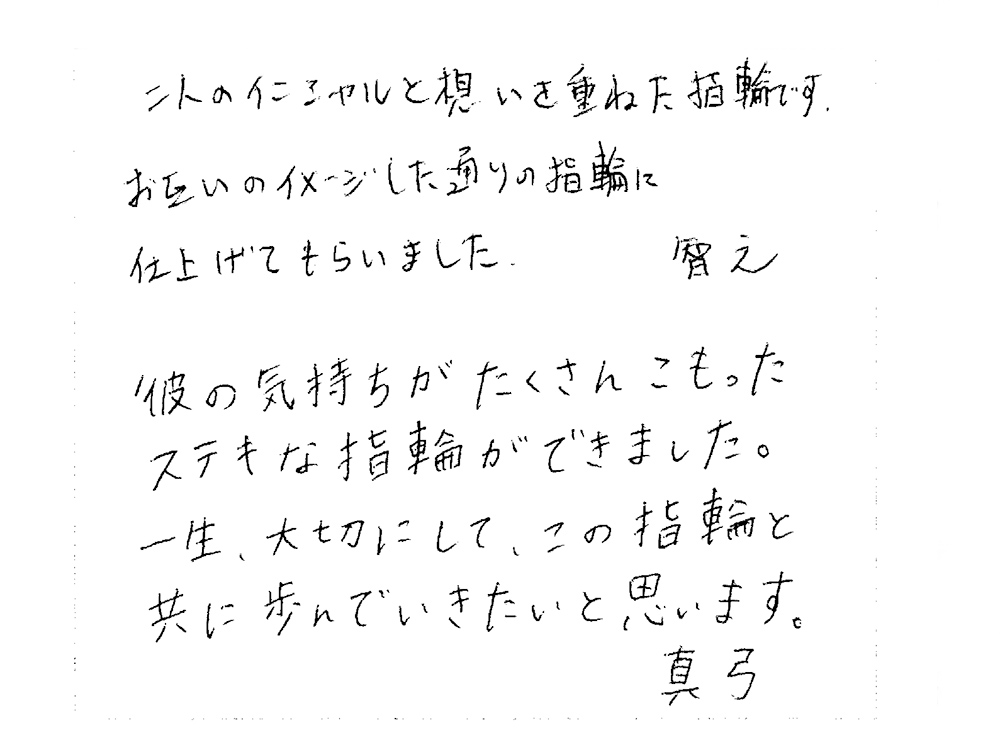 二人のイニシャルと想いを重ねた指輪です.
お互いのイメージした通りの指輪に
仕上げてもらいました.
智え
彼の気持ちがたくさんこもった
ステキな指輪ができました。
一生、大切にして、この指輪と
共に歩んでいきたいと思います。
真弓